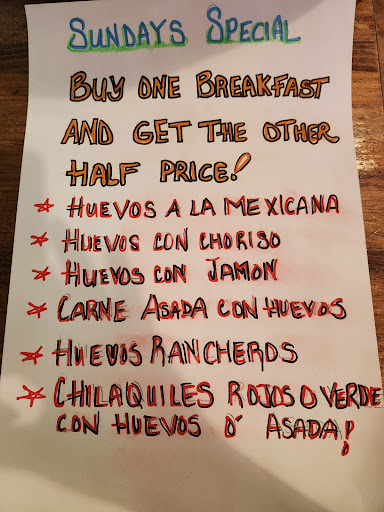 SUNDAYS SPECIAL
BUY ONE BREAKFAST
AND GET THE OTHER
HALF PRICE!
* HUEVOS A LA MEXICANA
* HUEVOS CON CHORISO
* HUEVOS CON JAMON
* CARNE ASADA CON HUEVOS
* HUEVOS RANCHEROS
* CHILAQUILES ROJOS O VERDE
CON HUEVOS Ó ASADA!